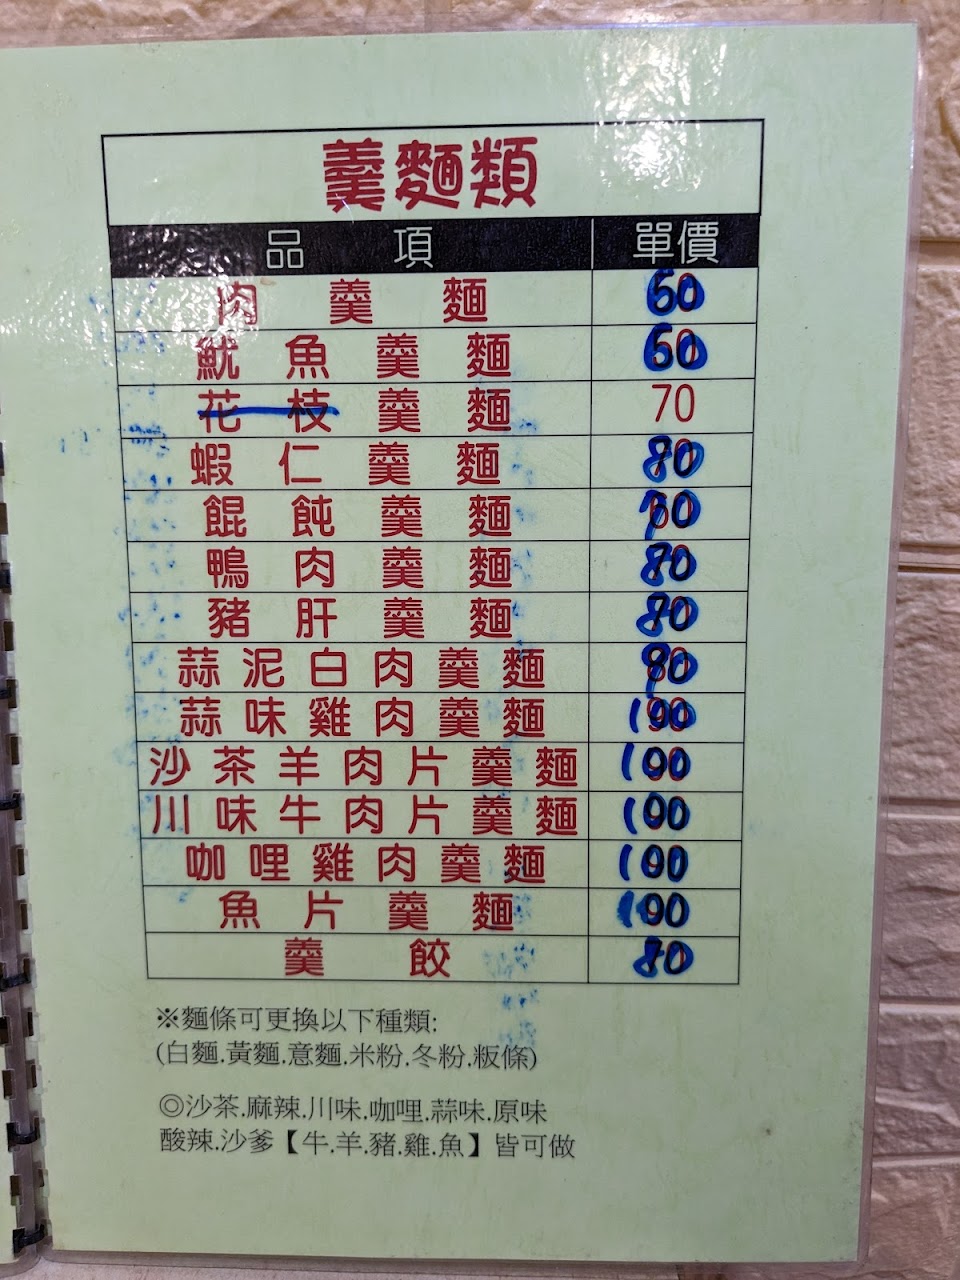 羹麵類
品項 單價
肉羹麵 60
魷魚羹麵 60
花枝羹麵 70
蝦仁羹麵 80
餛飩羹麵 70
鴨肉羹麵 80
豬肝羹麵 80
蒜泥白肉羹麵 90
蒜味雞肉羹麵 100
沙茶羊肉片羹麵 100
川味牛肉片羹麵 100
咖哩雞肉羹麵 100
魚片羹麵 100
羹餃 80
※麵條可更換以下種類:
(白麵.黃麵.意麵.米粉.冬粉.粄條)
◎沙茶.麻辣.川味.咖哩.蒜味.原味
酸辣.沙爹【牛.羊.豬.雞.魚】皆可做